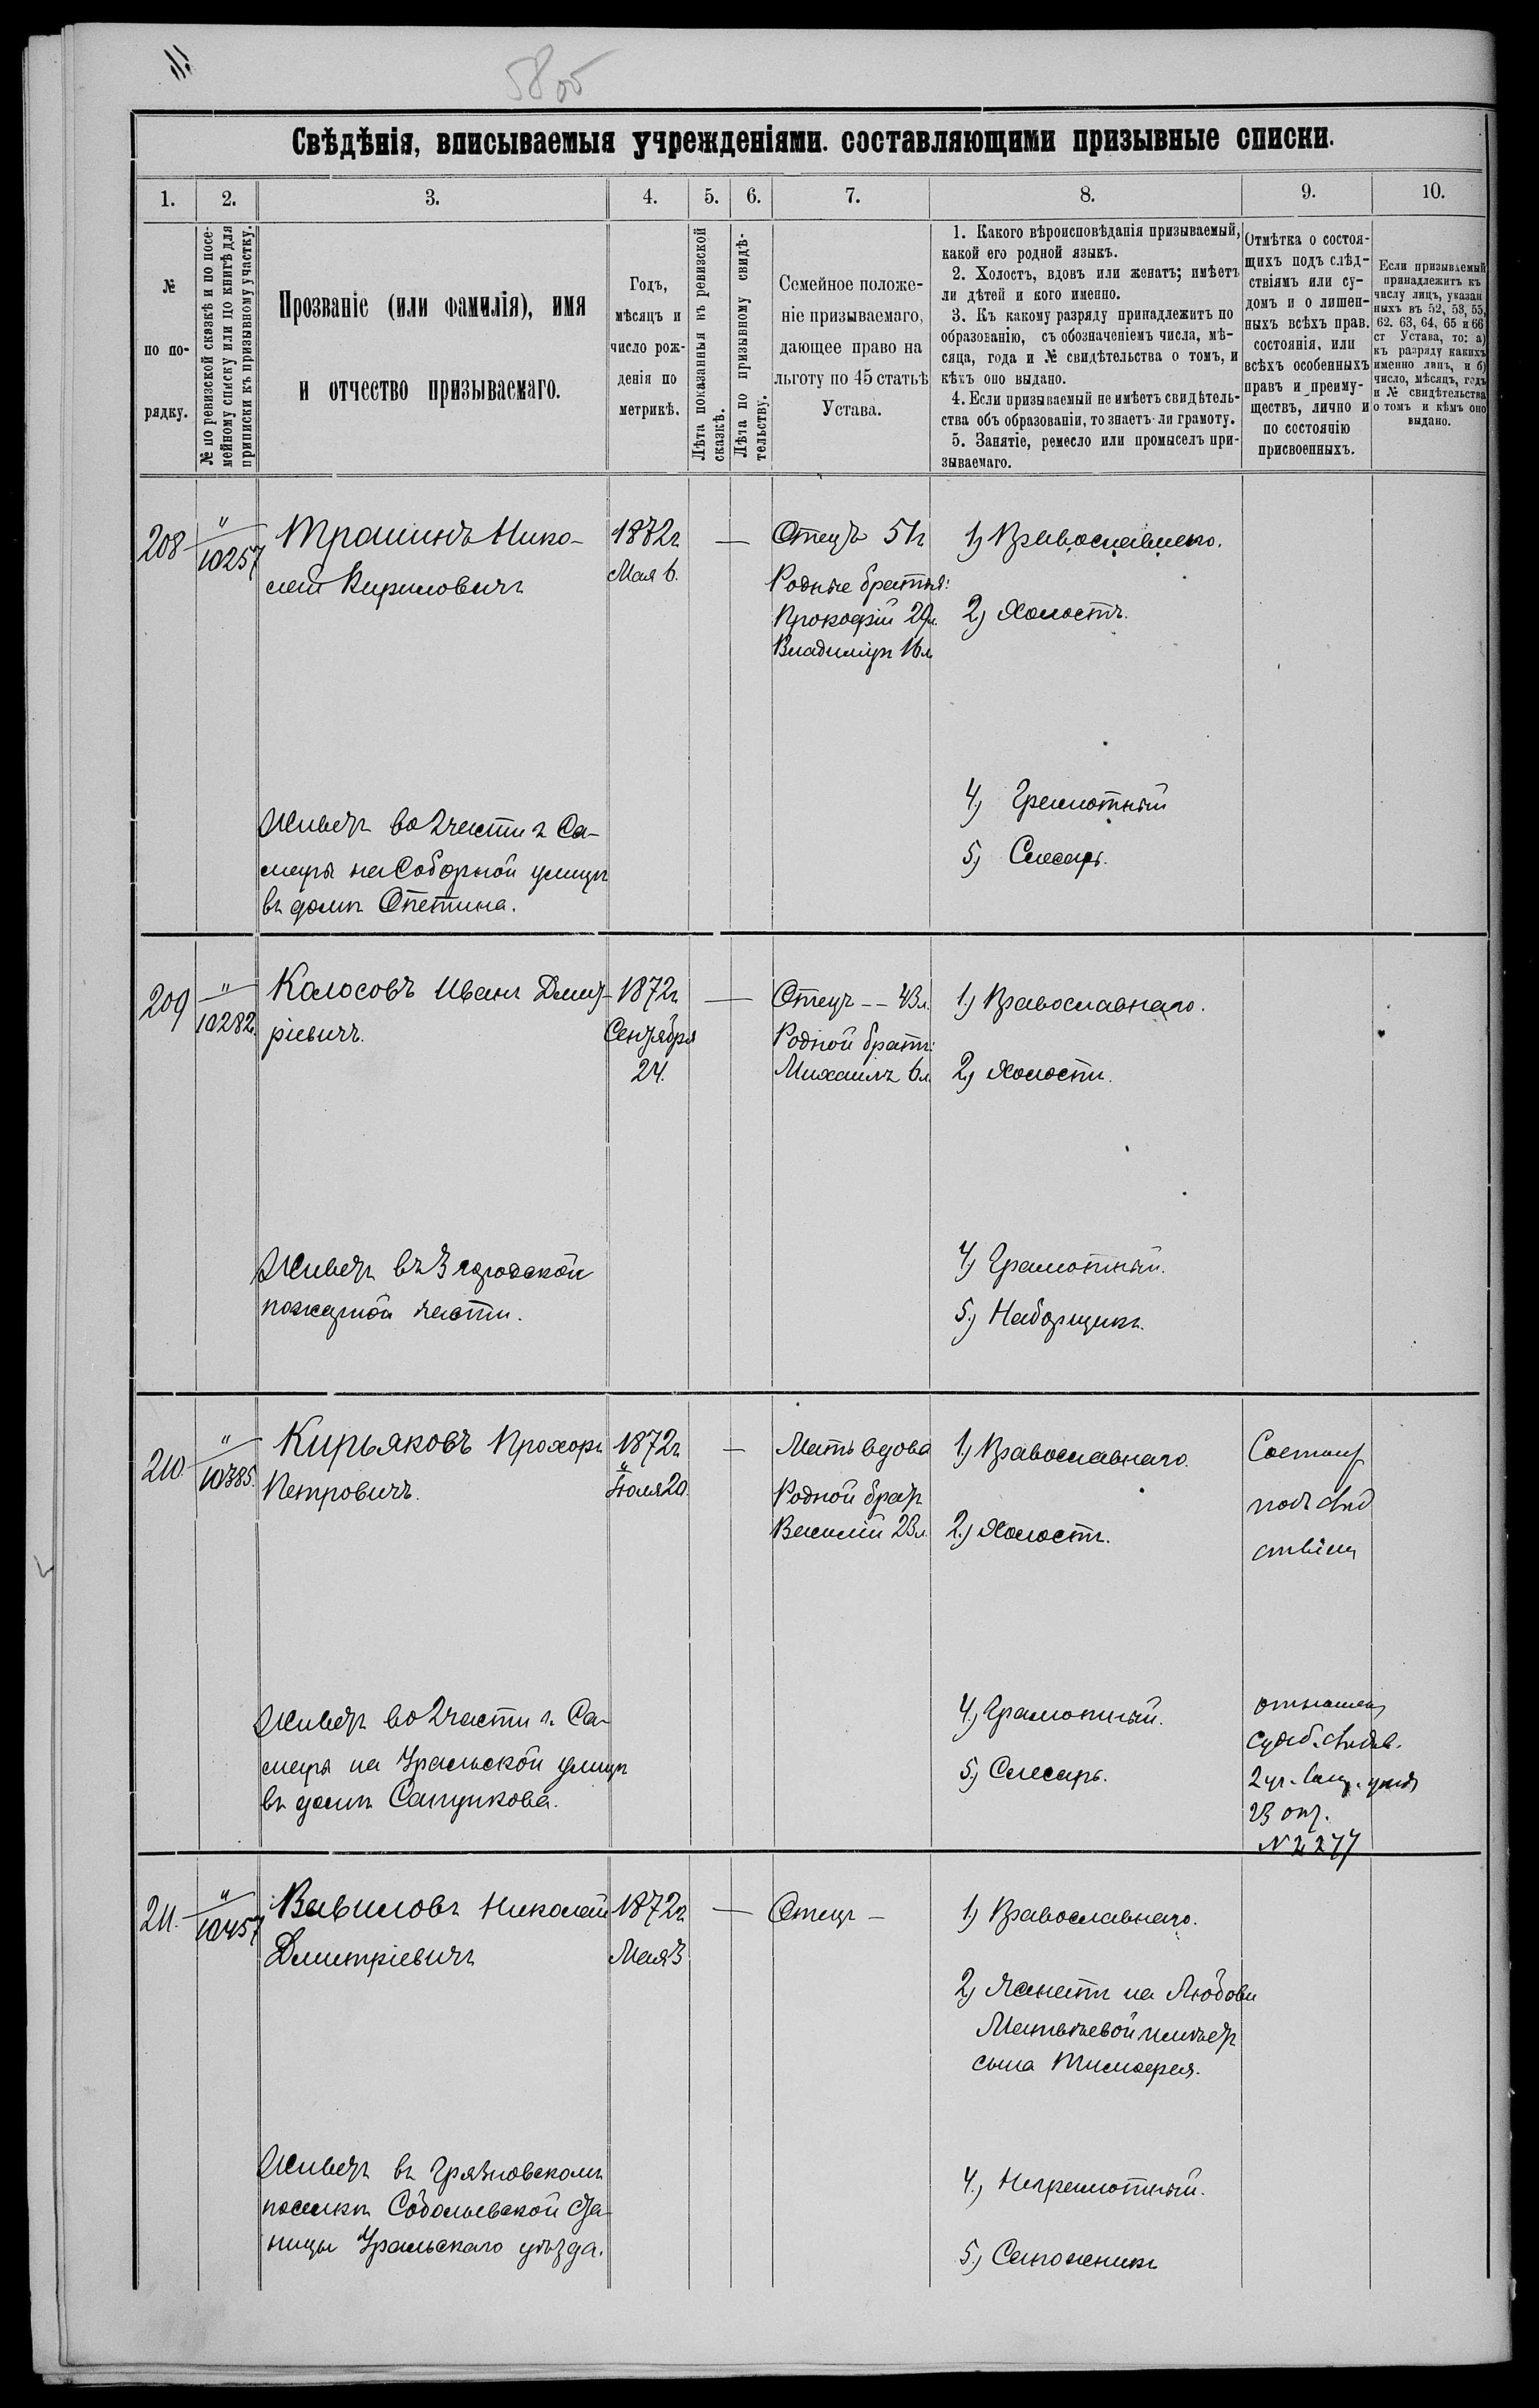 5805
Свѣдѣнія, вписываемыя учрежденіями. составляющими призывные списки.
1. 2. 3. 4. 5. 6. 7. 8. 9. 10.
№
по по-
рядку.
№ по ревизской сказкѣ и по посе-
мейному списку или по книгѣ для
приписки къ призывному участку.
Прозваніе (или фамилія), имя
и отчество призываемаго.
Годъ,
мѣсяцъ и
число рож-
денія по
метрикѣ.
Лѣта показанныя въ ревизской
сказкѣ.
Лѣта по призывному свидѣ-
тельству.
Семейное положе-
ніе призываемаго,
дающее право на
льготу по 45 статьѣ
Устава.
1. Какого вѣроисповѣданія призываемый,
какой его родной языкъ.
2. Холостъ, вдовъ или женатъ; имѣетъ
ли дѣтей и кого именно.
3. Къ какому разряду принадлежитъ по
образованію, съ обозначеніемъ числа, мѣ-
сяца, года и № свидѣтельства о томъ, и
кѣмъ оно выдано.
4. Если призываемый не имѣетъ свидѣтель-
ства объ образованіи, то знаетъ-ли грамоту.
5. Занятіе, ремесло или промыселъ при-
зываемаго.
Отмѣтка о состоя-
щихъ подъ слѣд-
ствіямъ или су-
домъ и о лишен-
ныхъ всѣхъ прав.
состоянія, или
всѣхъ особенныхъ
правъ и преиму-
ществъ, лично и
по состоянію
присвоенныхъ.
Если призываемый
принадлежитъ къ
числу лицъ, указан
ныхъ въ 52, 53, 55,
62. 63, 64, 65 и 66
ст Устава, то: а)
къ разряду какихъ
именно лицъ, и б)
число, мѣсяцъ, годъ
и № свидѣтельства
о томъ и кѣмъ оно
выдано.
208 " 10257 Трашинъ Нико- 1872г — Отецъ 51г 1) Православнаго.
лай Кириловичъ Мая 6. Родные братья:
Прокофій 29л. 2) Холостъ.
Владиміръ 16л
4) Грамотный
Живетъ во 2 части г Са-
5) Слесарь.
мары на Соборной улицѣ
въ домѣ
209 " 10282. Колосовъ Иванъ Дмит- 1872г — Отецъ -- 43л. 1) Православнаго.
ріевичъ. Сентября Родной братъ:
24. Михаилъ 6л. 2) Холостъ.
Живетъ въ 3 городской 4) Грамотный.
пожарной части. 5) Наборщикъ.
210. " 10385. Кирьяковъ Прохоръ 1872г — Мать вдова 1) Православнаго. Состоит
Петровичъ. Іюля 20. Родной братъ подъ слѣд
Василій 23л. 2) Холостъ. ствіем
Живетъ во 2 части г. Са- 4) Грамотный. отношен
мары на Уральской улицѣ 5) Слесарь. Судеб. слѣдов.
въ домѣ Сапункова. 2 уч. Сам. уѣзд
23 окт.
№ 2277
211. " 10457 Вавиловъ Николай 1872г — Отецъ — 1) Православнаго.
Дмитріевичъ Мая 3
2) Женатъ на Любови
Матвѣевой имѣетъ
сына Тимофея.
Живетъ въ Грязновскомъ 4) Неграмотный.
поселкѣ Соболевской Ста-
ницы Уральскаго уѣзда. 5) Сапожникъ